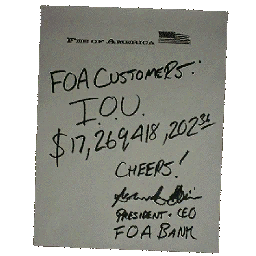 FEE OF AMERICA
FOA CUSTOMERS:
I.O.U.
$17,269,418,202 36
CHEERS!
PRESIDENT + CEO
FOA BANK